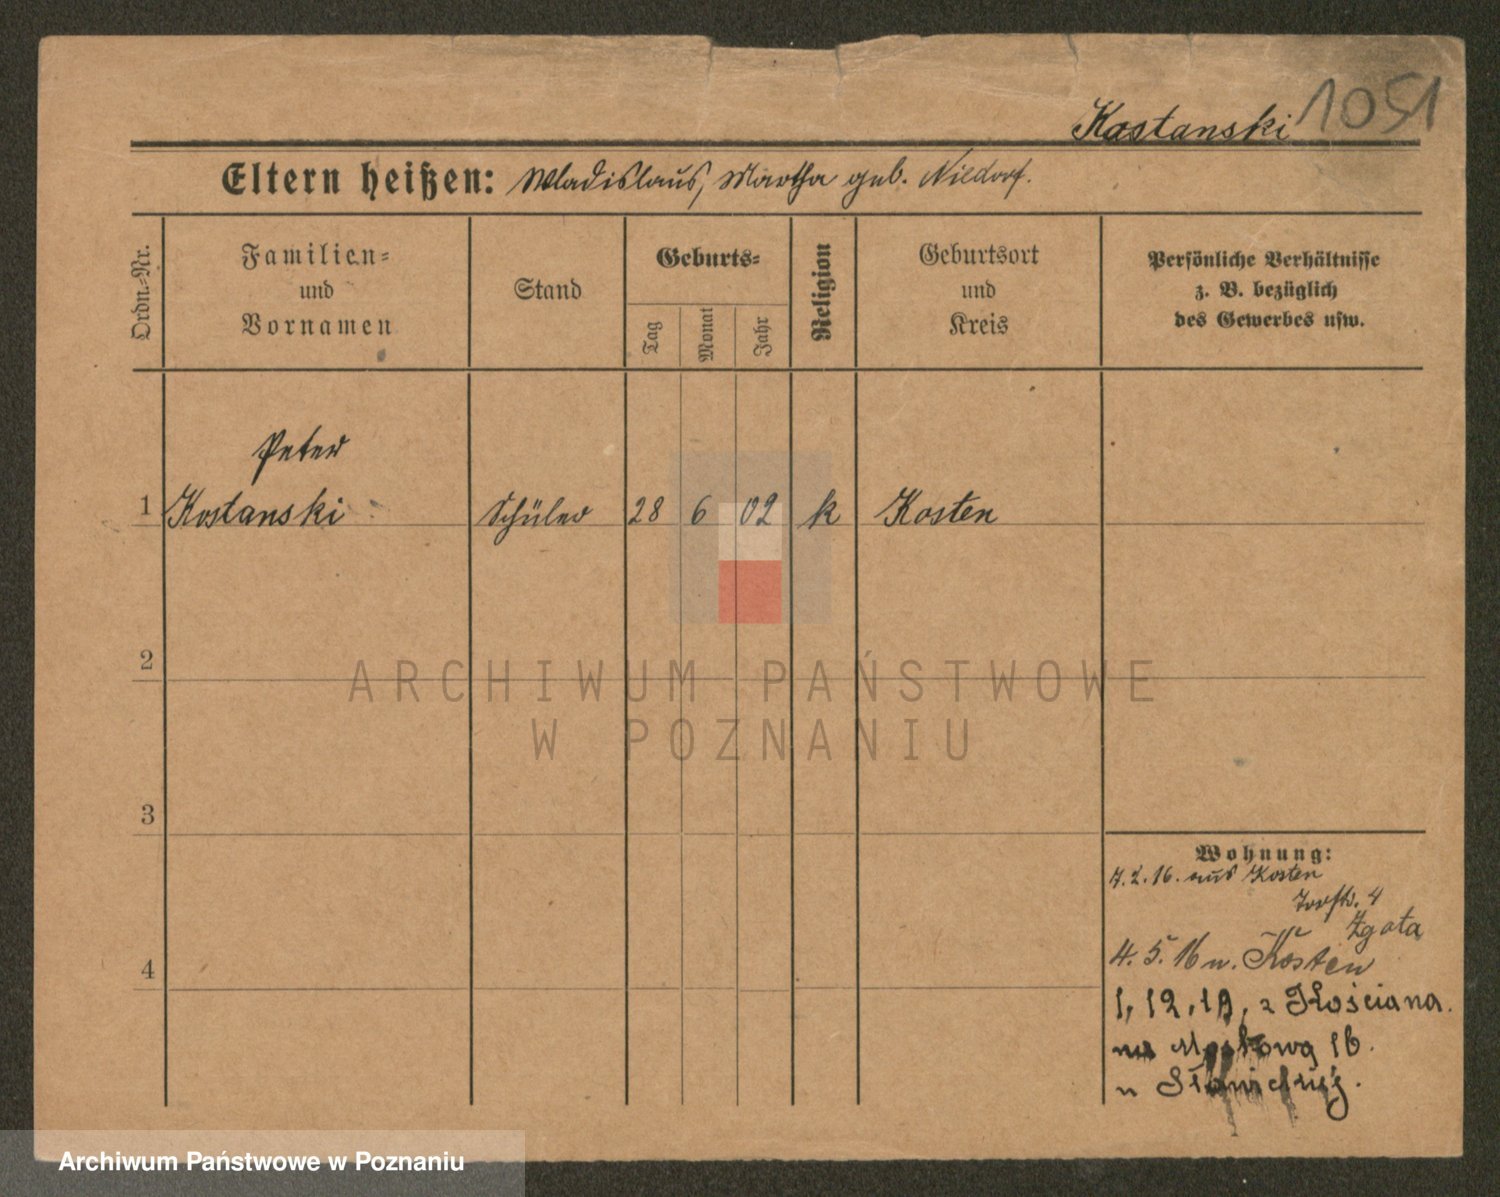 Kostanski 1051
Eltern heißen: Wladislaus, Martha geb. Niedorf.
Ordn.-Nr.
Familien-
und
Vornamen
Stand
Geburts-
Tag
Monat
Jahr
Religion
Geburtsort
und
Kreis
Persönliche Verhältnisse
z. B. bezüglich
des Gewerbes usw.
Peter
1 Kostanski Schüler 28 6 02 k Kosten
2
3
4
Wohnung:
7.2.16. aus Kosten
4
Zgota
4.5.16 n. Kosten
1, 12, 19, z Kościana.
na 16.
u
ARCHIWUM PAŃSTWOWE
W POZNANIU
Archiwum Państwowe w Poznaniu